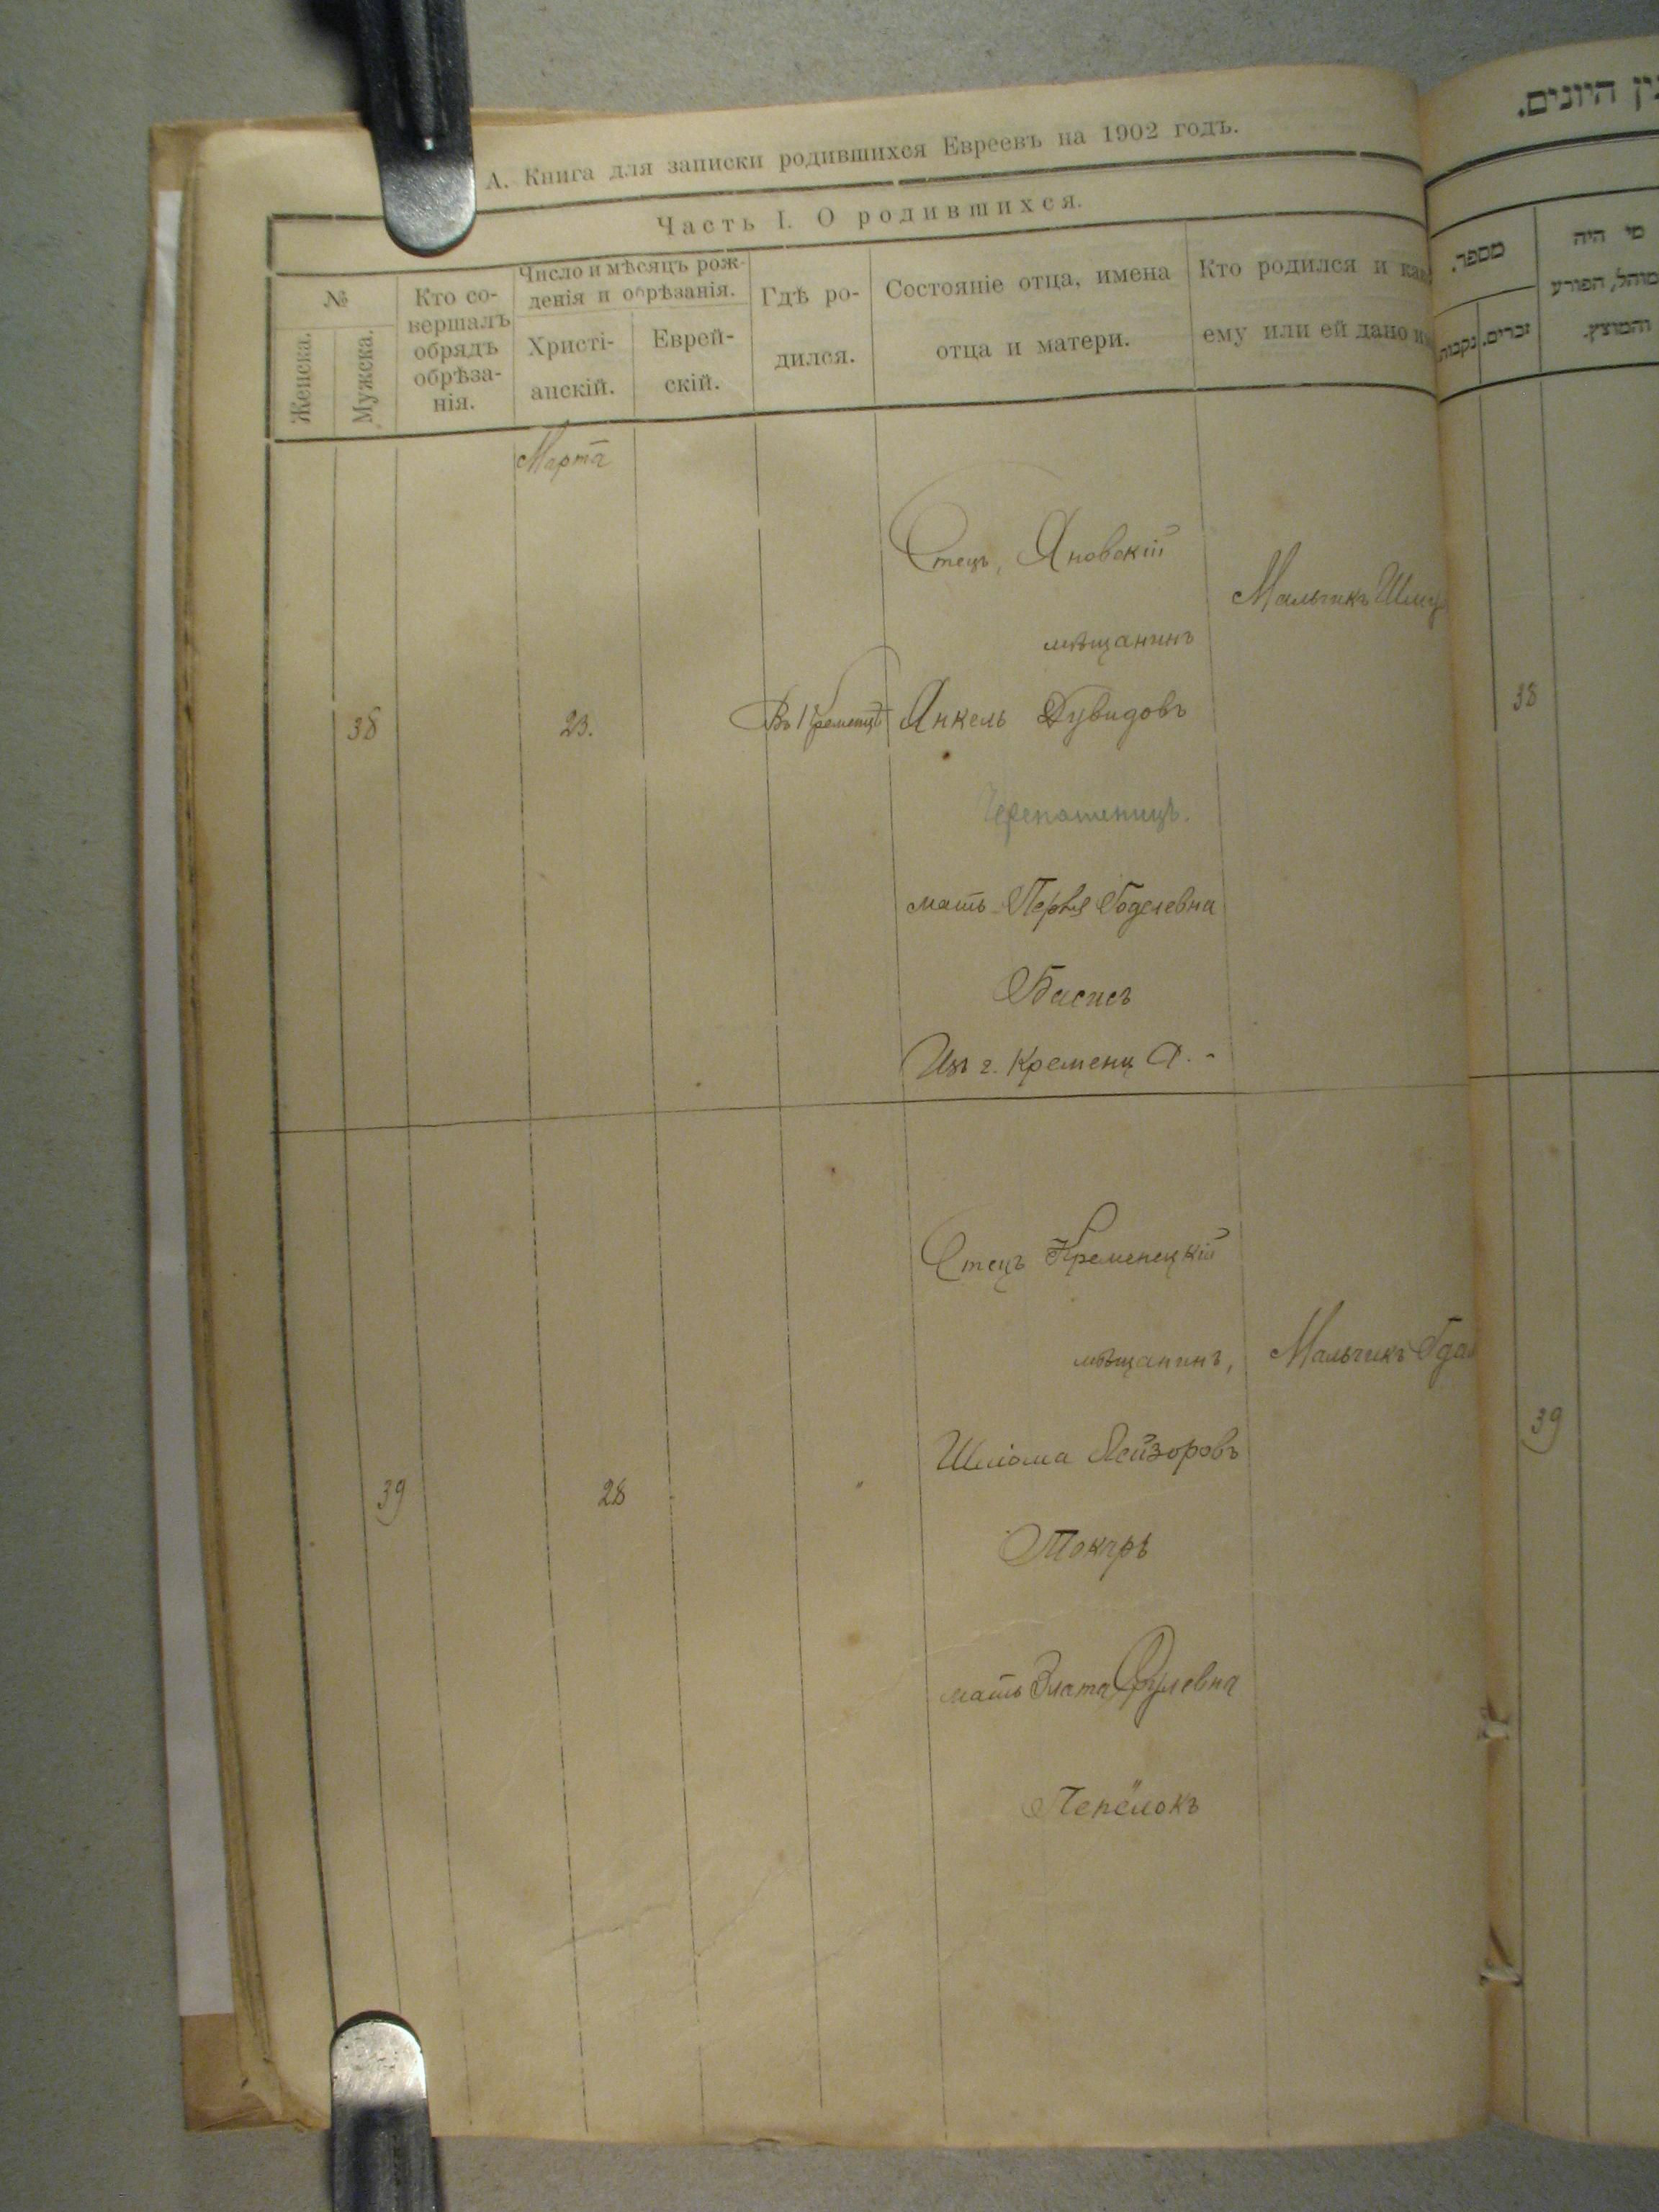 А. Книга для записки родившихся Евреевъ на 1902 годъ.
Часть I. О родившихся.
№
Женска.
Мужска.
Кто со-
вершалъ
обрядъ
обрѣза-
нія.
Число и мѣсяцъ рож-
денія и обрѣзанія.
Христі-
анскій.
Еврей-
скій.
Гдѣ ро-
дился.
Состояніе отца, имена
отца и матери.
Кто родился и как
ему или ей дано и
Марта
38
23.
Въ Кременцѣ
Отецъ, Яновскій
мѣщанинъ
Янкель Дувидовъ
мать Перля Годелевна
Басисъ
Изъ г. Кременца. -
Мальчикъ Шму
39
28
Отецъ Кременецкій
мѣщанинъ,
Шліома Лейзоровъ
Токарь
мать Злата Срулевна
Пепёлокъ
Мальчикъ Гдал
ין היונים.
מספר.
זכרים.
נקבות
מי היה
מוהל, הפורע
והמוצץ.
38
39